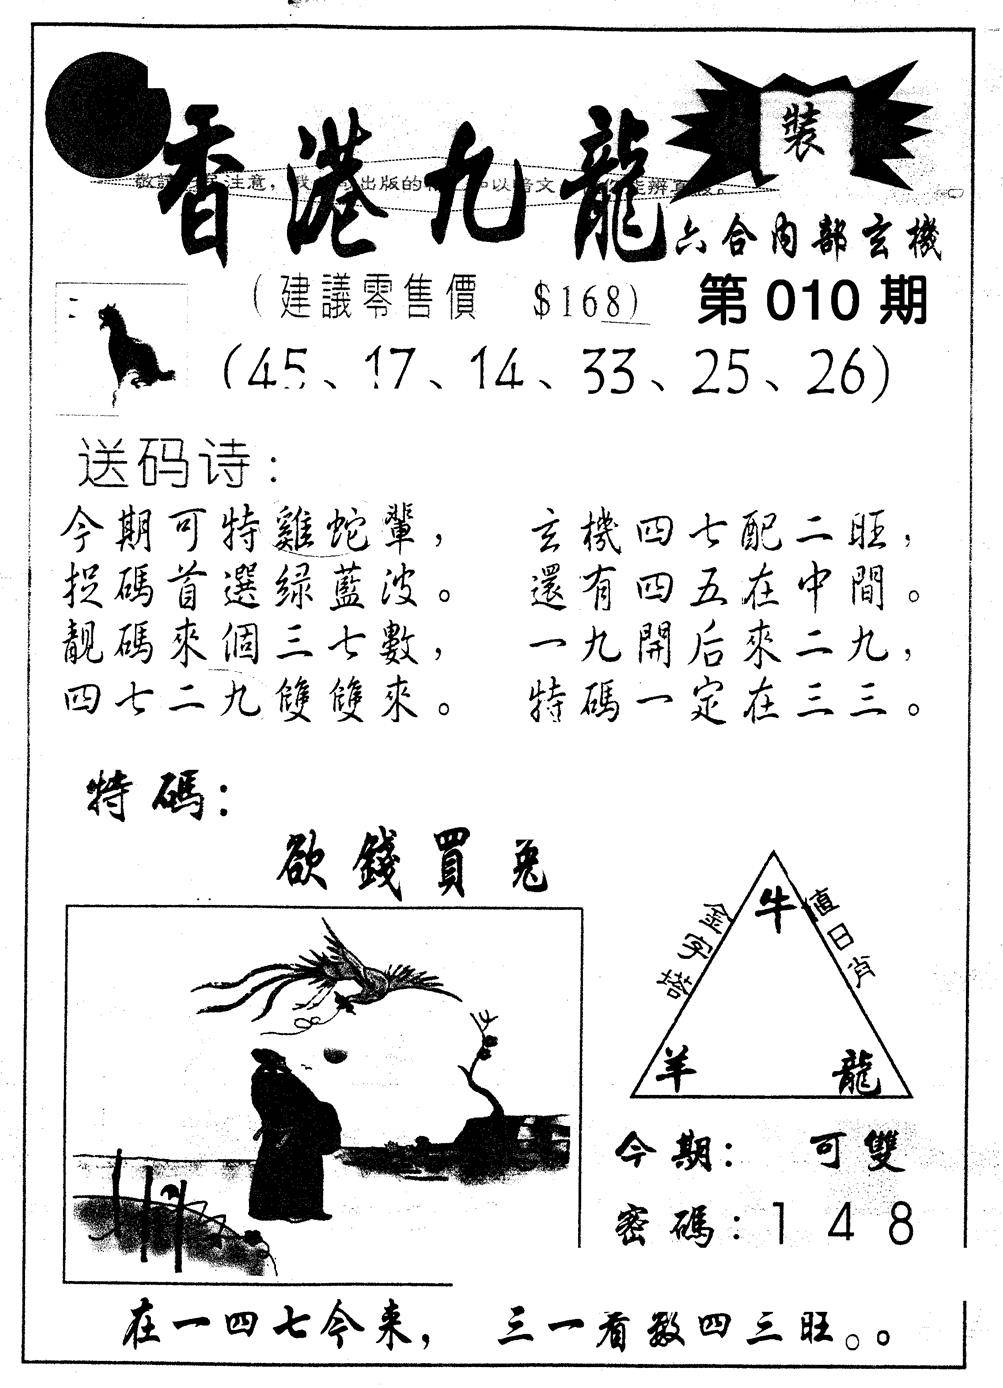 香港九龍
裝
六合內部玄機
(建議零售價 $168)
第010期
(45、17、14、33、25、26)
送码诗:
今期可特雞蛇輩, 玄機四七配二旺,
捉碼首選绿藍波。 還有四五在中間。
靚碼來個三七數, 一九開后來二九,
四七二九雙雙來。 特碼一定在三三。
特碼:
欲錢買兔
金字塔
值日肖
牛
羊 龍
今期: 可雙
密碼:148
在一四七今来, 三一看數四三旺。。